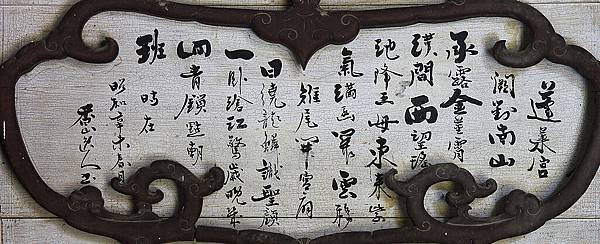 蓬莱宮
闕對南山
承露金莖霄
漢間西望瑤
池降王母東来紫
氣滿函関雲移
雉尾開宮扇
日繞龍鱗識聖顔
一臥滄江驚歲晚幾
回青鎖點朝
班 時在
昭和辛未春月
山逸人